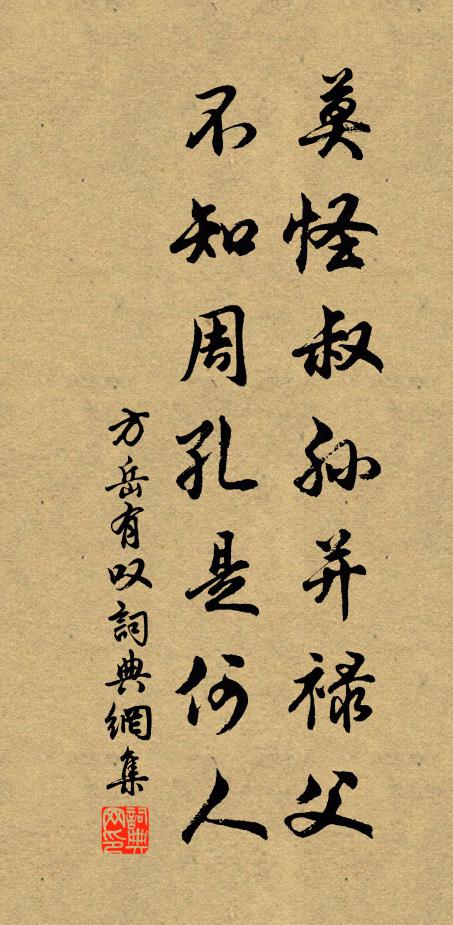 莫怪叔孙并禄父
不知周孔是何人
方岳有叹詞典網集
詞典
网印